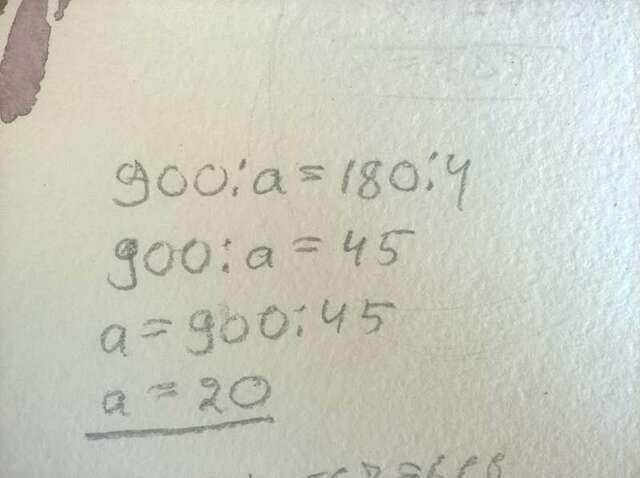 900:a=180:4
900:a=45
a=900:45
a=20